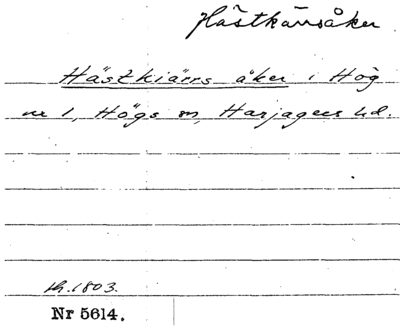 Hästkärrsåker
Hästkiärrs åker i Hög
nr 1, Högs sn, Harjagers hd.
1803.
Nr 5614.